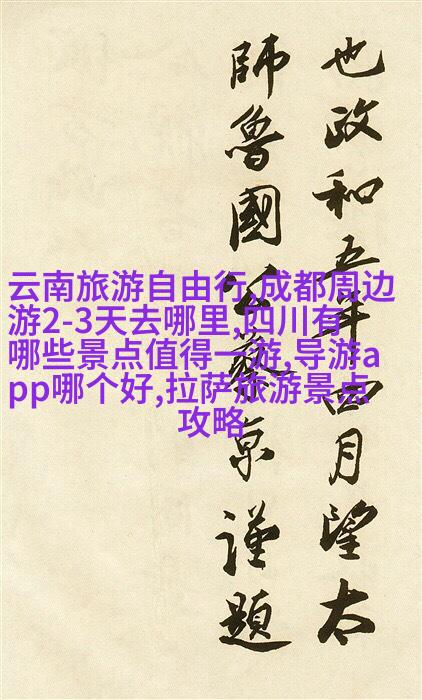 也政和五年四月望太
師魯國公蔡京謹題
云南旅游自由行,成都周边
游2-3天去哪里,四川有
哪些景点值得一游,导游a
pp哪个好,拉萨旅游景点
攻略